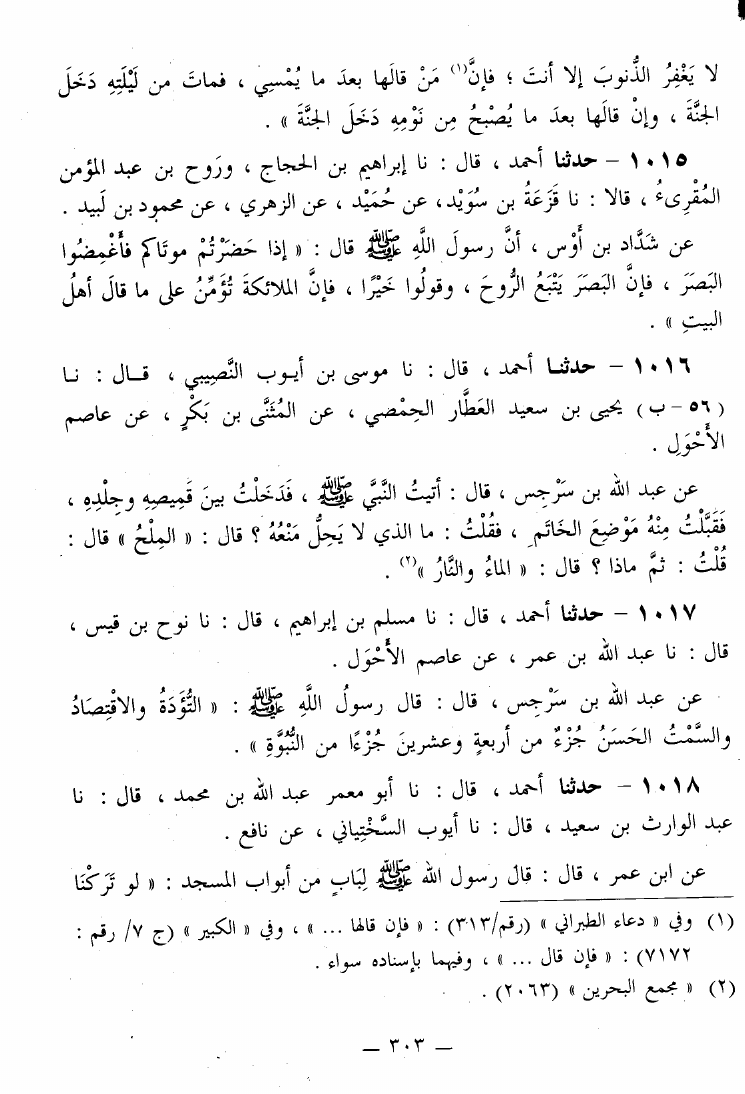 لا يَغْفِرُ الذُّنوبَ إلا أنتَ ؛ فإنَّ(١) مَنْ قالَها بعدَ ما يُمْسِي ، فماتَ من لَيْلَتِهِ دَخَلَ
الجنَّةَ ، وإنْ قالَها بعدَ ما يُصْبحُ مِن نَوْمِهِ دَخَلَ الجنَّةَ » .
١٠١٥ – حدثنا أحمد ، قال : نا إبراهيم بن الحجاج ، ورَوح بن عبد المؤمن
المُقْرِىءُ ، قالا : نا قَزَعَةُ بن سُوَيْد، عن حُمَيْد ، عن الزهري ، عن محمود بن لَبيد .
عن شَدَّاد بن أَوْس ، أنَّ رسولَ اللَّهِ ﷺ قال : « إذا حَضَرْتُمْ موتَاكم فأَغْمِضُوا
البَصَرَ ، فإنَّ البَصَرَ يَتْبَعُ الرُّوحَ ، وقولُوا خَيْرًا ، فإنَّ الملائكةَ تُؤَمِّنُ على ما قالَ أهلُ
البيتِ » .
١٠١٦ – حدثنا أحمد ، قال : نا موسى بن أيوب النَّصِيبي ، قال : نا
(٥٦ – ب) يحيى بن سعيد العَطَّار الحِمْصي ، عن المُثَنَّى بن بَكْرٍ ، عن عاصم
الأَحْوَلِ .
عن عبد الله بن سَرْجِس ، قال : أتيتُ النَّبيَّ ﷺ ، فَدَخَلْتُ بينَ قَمِيصِهِ وجِلْدِهِ ،
فَقَبَّلْتُ مِنْهُ مَوْضِعَ الخَاتَمِ ، فقُلْتُ : ما الذي لا يَحِلُّ مَنْعُهُ ؟ قال : « المِلْحُ » قال :
قُلْتُ : ثمَّ ماذا ؟ قال : « الماءُ والنَّارُ »(٢) .
١٠١٧ – حدثنا أحمد ، قال : نا مسلم بن إبراهيم ، قال : نا نوح بن قيس ،
قال : نا عبد الله بن عمر ، عن عاصم الأَحْوَل .
عن عبد الله بن سَرْجِس ، قال : قال رسولُ اللَّهِ ﷺ : « التُّؤَدَةُ والاقْتِصَادُ
والسَّمْتُ الحَسَنُ جُزْءٌ من أربعةٍ وعشرينَ جُزْءًا من النُّبُوَّةِ » .
١٠١٨ – حدثنا أحمد ، قال : نا أبو معمر عبد الله بن محمد ، قال : نا
عبد الوارث بن سعيد ، قال : نا أيوب السَّخْتِياني ، عن نافع .
عن ابن عمر ، قال : قال رسول الله ﷺ لِبَابٍ من أبواب المسجد : « لو تَرَكْنَا
(١) وفي « دعاء الطبراني » (رقم/٣١٣) : « فإن قالها ... » ، وفي « الكبير » (ج ٧/ رقم :
٧١٧٢) : « فإن قال ... » ، وفيهما بإسناده سواء .
(٢) « مجمع البحرين » (٢٠٦٣) .
– ٣٠٣ –